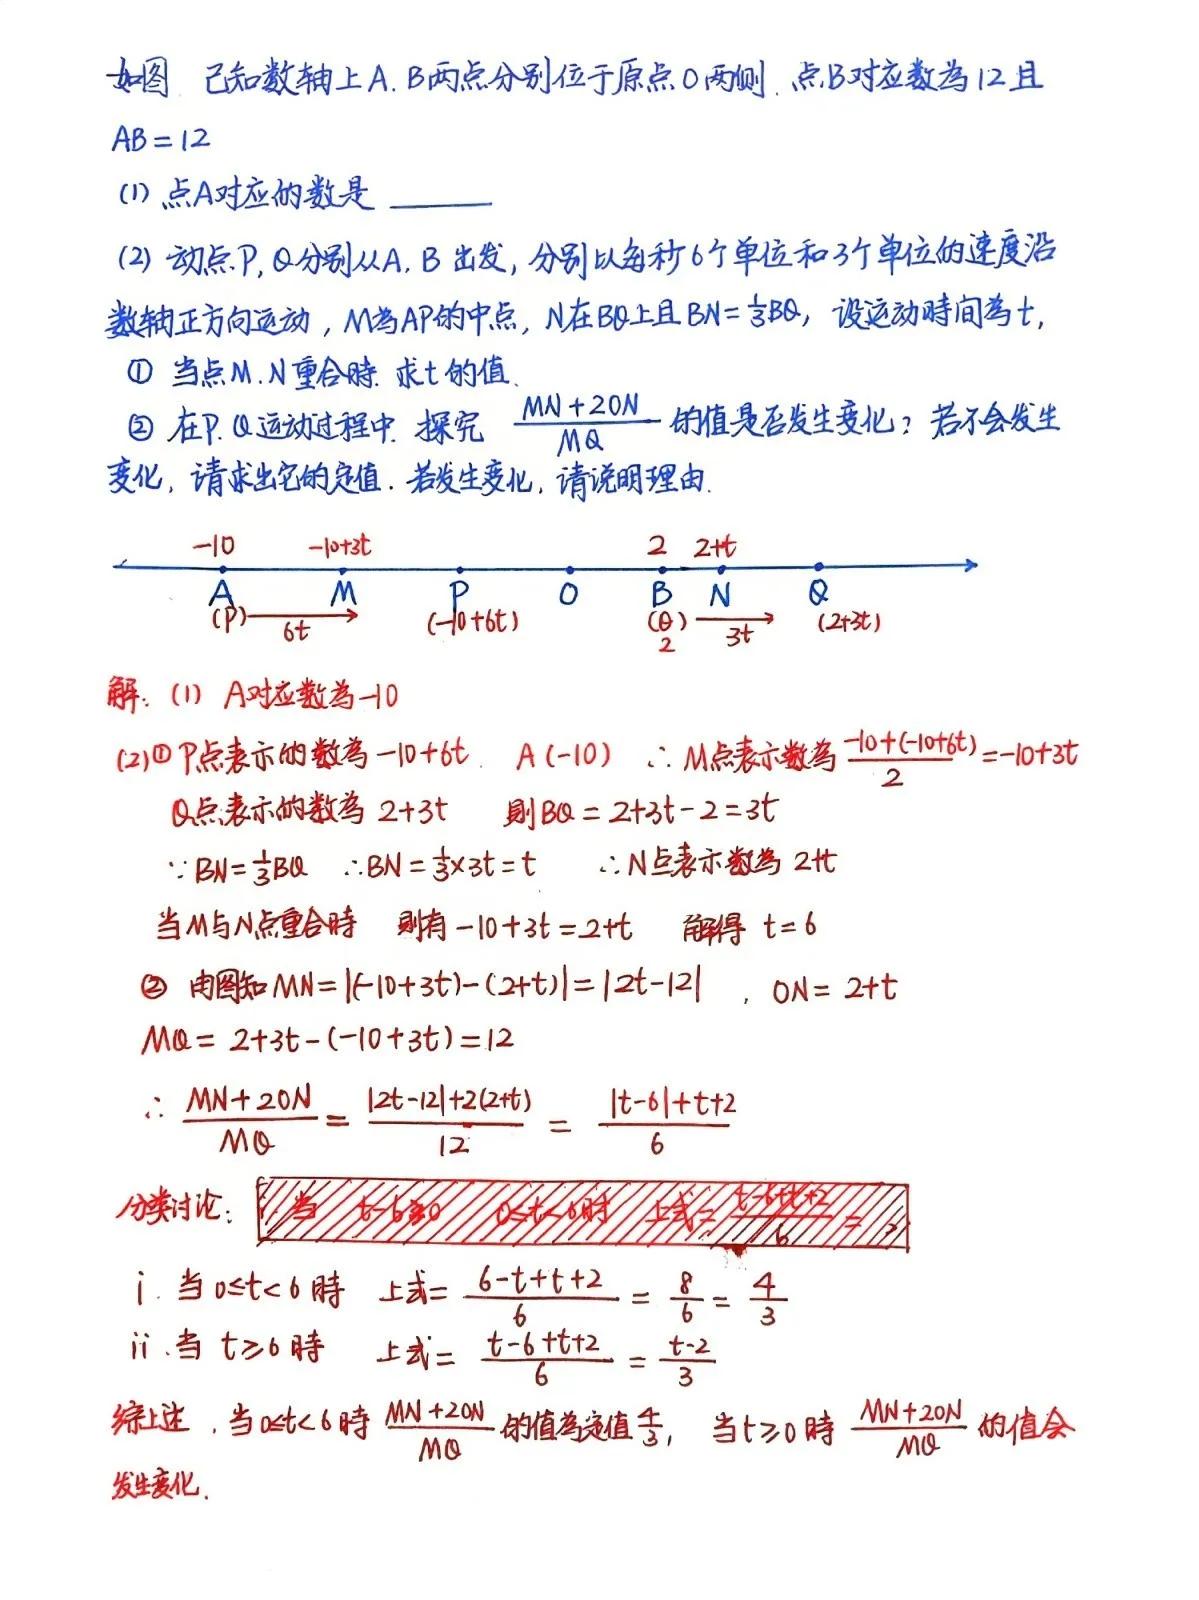 如图 已知数轴上A.B两点分别位于原点O两侧.点B对应数為12且
AB=12
(1) 点A对应的数是 ______
(2) 动点P,Q分别从A.B出发,分别以每秒6个单位和3个单位的速度沿
数轴正方向运动,M為AP的中点,N在BQ上且BN=1/3BQ,设运动時间為t,
① 当点M.N重合時.求t的值.
② 在P.Q运动过程中.探究 (MN+2ON)/MQ 的值是否发生变化?若不会发生
变化,请求出它的定值.若发生变化,请说明理由.
-10 -10+3t 2 2+t
A M P O B N Q
(P) 6t (-10+6t) (Q) 2 3t (2+3t)
解:(1) A对应数為-10
(2)① P点表示的数為-10+6t. A(-10) ∴M点表示数為 (-10+(-10+6t))/2 =-10+3t
Q点表示的数為 2+3t 則BQ=2+3t-2=3t
∵BN=1/3BQ ∴BN=1/3×3t=t ∴N点表示数為 2+t
当M与N点重合時 則有-10+3t=2+t 解得 t=6
② 由图知MN=|(-10+3t)-(2+t)|=|2t-12| , ON=2+t
MQ=2+3t-(-10+3t)=12
∴ (MN+2ON)/MQ = (|2t-12|+2(2+t))/12 = (|t-6|+t+2)/6
分类讨论: 当 t-6≥0 0≤t<6時 上式= (t-6+t+2)/6 =
i.当0≤t<6時 上式= (6-t+t+2)/6 = 8/6 = 4/3
ii.当 t≥6時 上式= (t-6+t+2)/6 = (t-2)/3
综上述.当0≤t<6時 (MN+2ON)/MQ 的值為定值4/3, 当t≥0時 (MN+2ON)/MQ 的值会
发生变化.